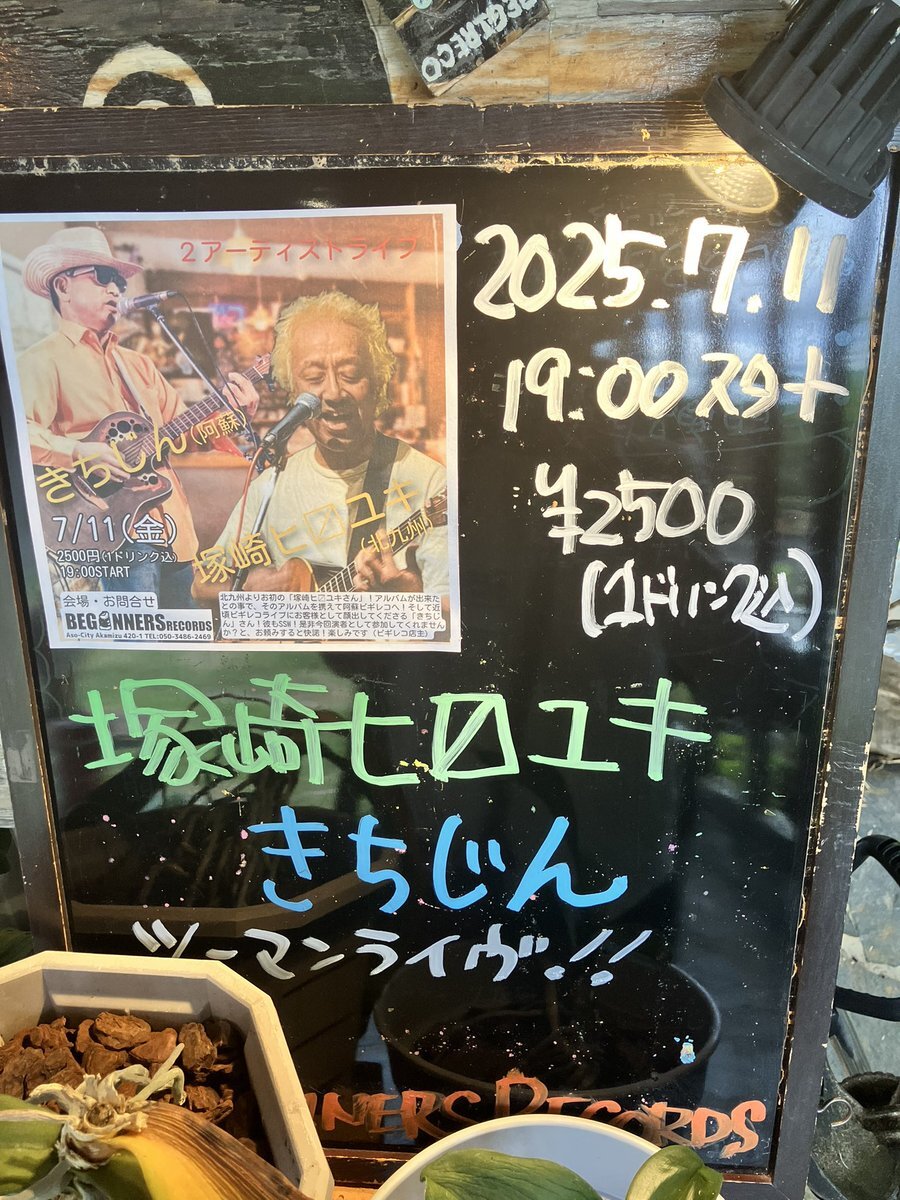 BEGIRECO
2アーティストライブ
きちじん(阿蘇)
7/11(金)
2500円(1ドリンク込)
19:00START
塚崎ヒロユキ
(北九州)
会場・お問合せ
BEGINNERS RECORDS
Aso-City Akamizu 420-1 TEL:050-3486-2469
北九州よりお初の「塚崎ヒロユキさん」!アルバムが出来た
との事で、そのアルバムを携えて阿蘇ビギレコへ!そして近
頃ビギレコライブにお客様として顔出してくださる「きちじ
ん」さん!彼もSSW!是非今回演者として参加してくれません
か?と、お頼みすると快諾!楽しみです(ビギレコ店主)
2025.7.11
19:00スタート
¥2500
(1ドリンク込)
塚崎ヒロユキ
きちじん
ツーマンライヴ!!
NNERS RECORDS